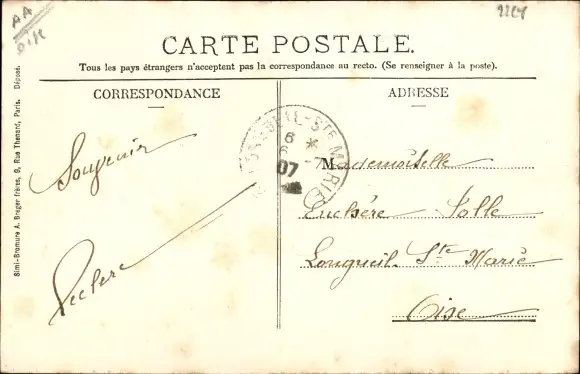 AA
CARTE POSTALE.
Tous les pays étrangers n'acceptent pas la correspondance au recto. (Se renseigner à la poste).
CORRESPONDANCE
ADRESSE
Souvenir
Leclerc
Mademoiselle
Luchère Solle
Longueil Ste Marie
Oise
STE MARIE
6 *
6 -7
07
Simi-Bromure A. Breger frères, 9, Rue Thénard, Paris. Déposé.